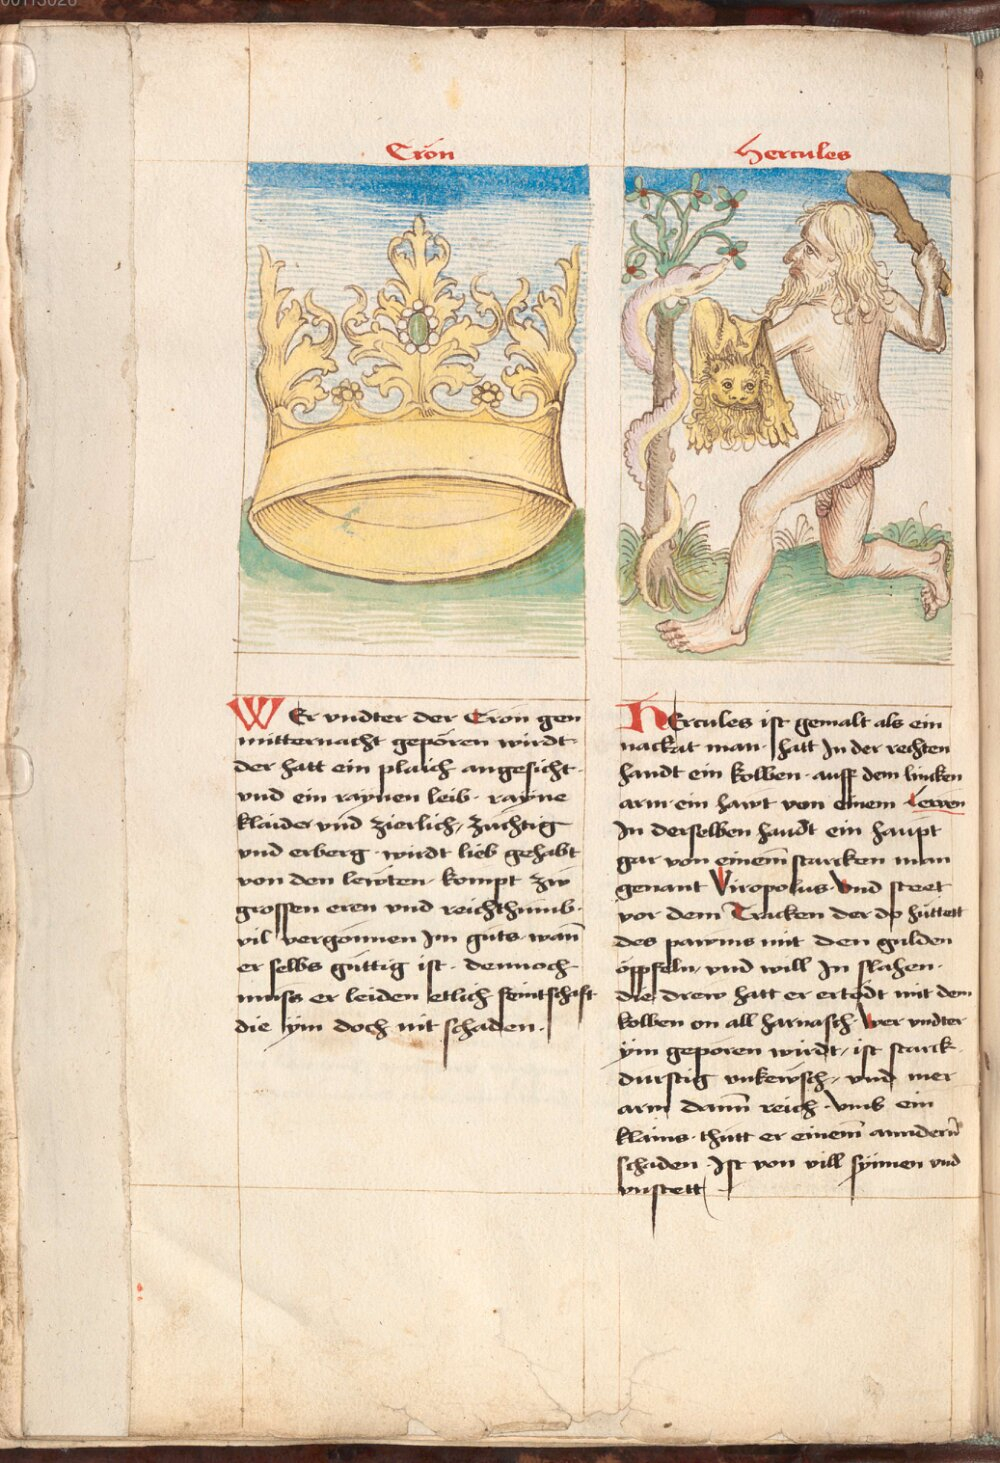 Cron
WEr vndter der Cron gen
mitternacht geporen wirdt
der hatt ein plaich angesicht
vnd ein raynen leib · rayne
klaider vnd zierlich / züchtig
vnd erberg · wirdt lieb gehabt
von den lewten · kompt zw
grossen eren vnd reichthumb ·
vil vergonnen Im guts · wan̄
er selbs güttig ist · dennoch
muss er leiden etlich feintschafft
die ym doch nit schaden ·
Hercules
HErcules ist gemalt als ein
nackat man · hatt In der rechten
handt ein kolben · auff dem lincken
arm ein hawt von einem Lewen
In derselben handt ein haupt
gar von einem starcken man
genant Viropolus · Vnd steet
vor dem Tracken der do hüttett
des pawms mit den gulden
öpffeln / vnd will In slahen ·
die drew hatt er ertodt mit dem
kolben on all harnasch · Wer vndter
ym geporen wirdt / ist starck ·
durstig vnkewsch / vnd mer
arm dann̄ reich · vmb ein
klains · thutt er einem anndern
schaden · Ist von vill synnen vnd
vnstett